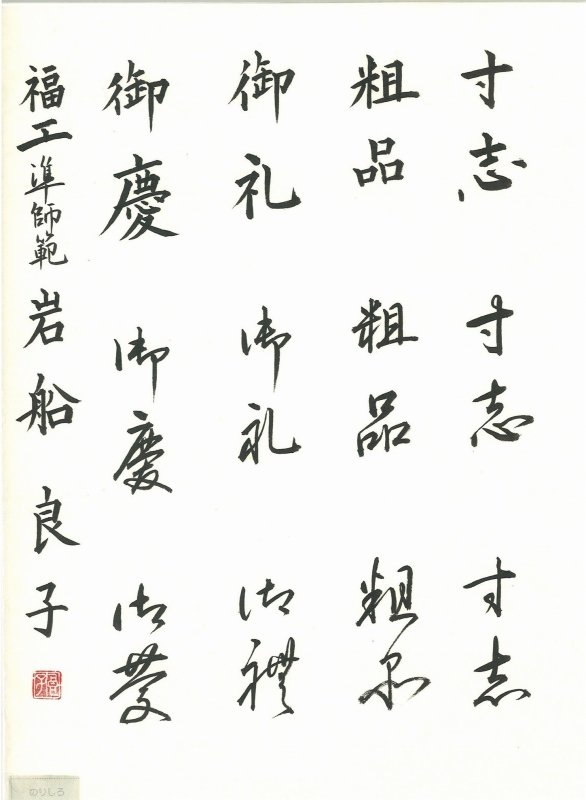 寸志 寸志 寸志
粗品 粗品 粗品
御礼 御礼 御禮
御慶 御慶 御慶
福工準師範岩船良子
のりしろ